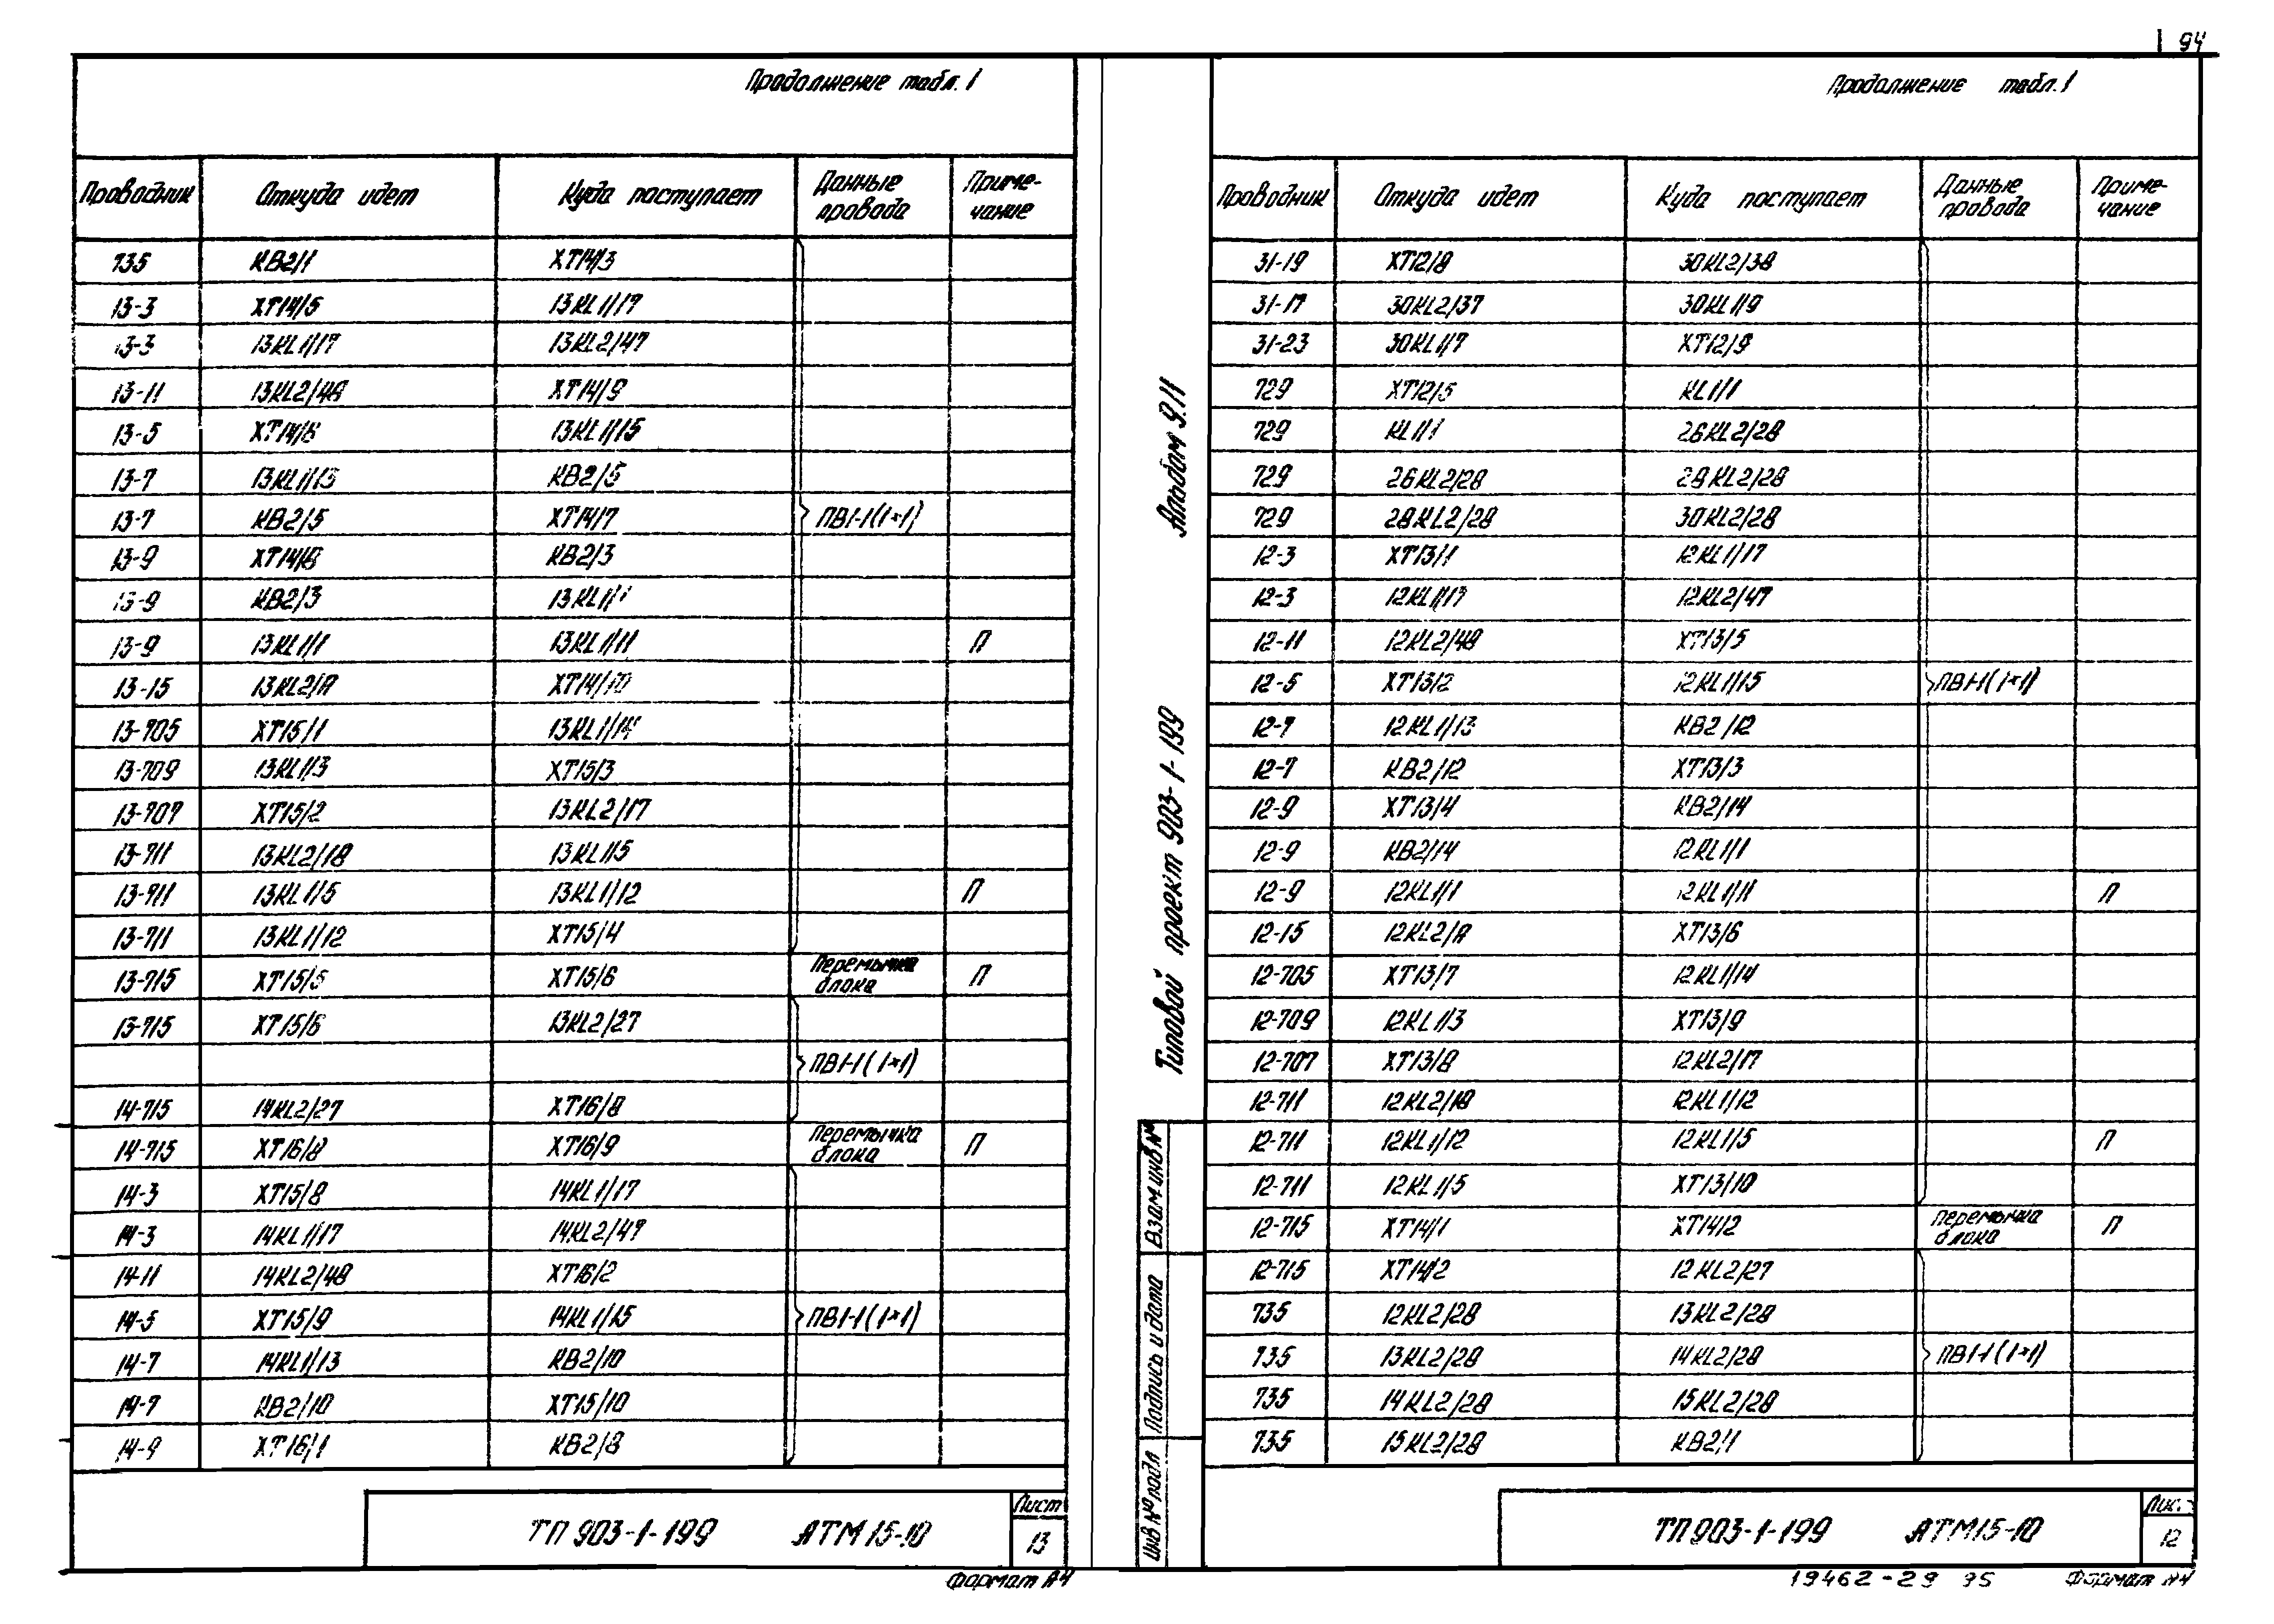 94
Продолжение табл. 1
Проводник Откуда идет Куда поступает Данные провода Приме-чание
735 КВ2/1 ХТ14/3
13-3 ХТ14/5 13KL1/17
13-3 13KL1/17 13KL2/47
13-11 13KL2/48 ХТ14/9
13-5 ХТ14/6 13KL1/15
13-7 13KL1/13 КВ2/5
13-7 КВ2/5 ХТ14/7 ПВ1-1(1×1)
13-9 ХТ14/8 КВ2/3
13-9 КВ2/3 13KL1/1
13-9 13KL1/1 13KL1/11 П
13-15 13KL2/А ХТ14/10
13-705 ХТ15/1 13KL1/14
13-709 13KL1/3 ХТ15/3
13-707 ХТ15/2 13KL2/17
13-711 13KL2/18 13KL1/5
13-711 13KL1/5 13KL1/12 П
13-711 13KL1/12 ХТ15/4
13-715 ХТ15/5 ХТ15/6 Перемычка блока П
13-715 ХТ15/6 13KL2/27
ПВ1-1(1×1)
14-715 14KL2/27 ХТ16/8
14-715 ХТ16/8 ХТ16/9 Перемычка блока П
14-3 ХТ15/8 14KL1/17
14-3 14KL1/17 14KL2/47
14-11 14KL2/48 ХТ16/2
14-5 ХТ15/9 14KL1/15 ПВ1-1(1×1)
14-7 14KL1/13 КВ2/10
14-7 КВ2/10 ХТ15/10
14-9 ХТ16/1 КВ2/8
ТП 903-1-199 АТМ15-10 Лист 13
Формат А4
Альбом 9.11
Типовой проект 903-1-199
Взам инв.№
Подпись и дата
Инв № подл
Продолжение табл. 1
Проводник Откуда идет Куда поступает Данные провода Приме-чание
31-19 ХТ12/8 30KL2/38
31-17 30KL2/37 30KL1/9
31-23 30KL1/7 ХТ12/9
729 ХТ12/5 KL1/1
729 KL1/1 26KL2/28
729 26KL2/28 28KL2/28
729 28KL2/28 30KL2/28
12-3 ХТ13/1 12KL1/17
12-3 12KL1/17 12KL2/47
12-11 12KL2/48 ХТ13/5
12-5 ХТ13/2 12KL1/15 ПВ1-1(1×1)
12-7 12KL1/13 КВ2/12
12-7 КВ2/12 ХТ13/3
12-9 ХТ13/4 КВ2/14
12-9 КВ2/14 12KL1/1
12-9 12KL1/1 12KL1/11 П
12-15 12KL2/А ХТ13/6
12-705 ХТ13/7 12KL1/14
12-709 12KL1/3 ХТ13/9
12-707 ХТ13/8 12KL2/17
12-711 12KL2/18 12KL1/12
12-711 12KL1/12 12KL1/5 П
12-711 12KL1/5 ХТ13/10
12-715 ХТ14/1 ХТ14/2 Перемычка блока П
12-715 ХТ14/2 12KL2/27
735 12KL2/28 13KL2/28
735 13KL2/28 14KL2/28 ПВ1-1(1×1)
735 14KL2/28 15KL2/28
735 15KL2/28 КВ2/1
ТП 903-1-199 АТМ15-10 12
19462-29 95 Формат А4